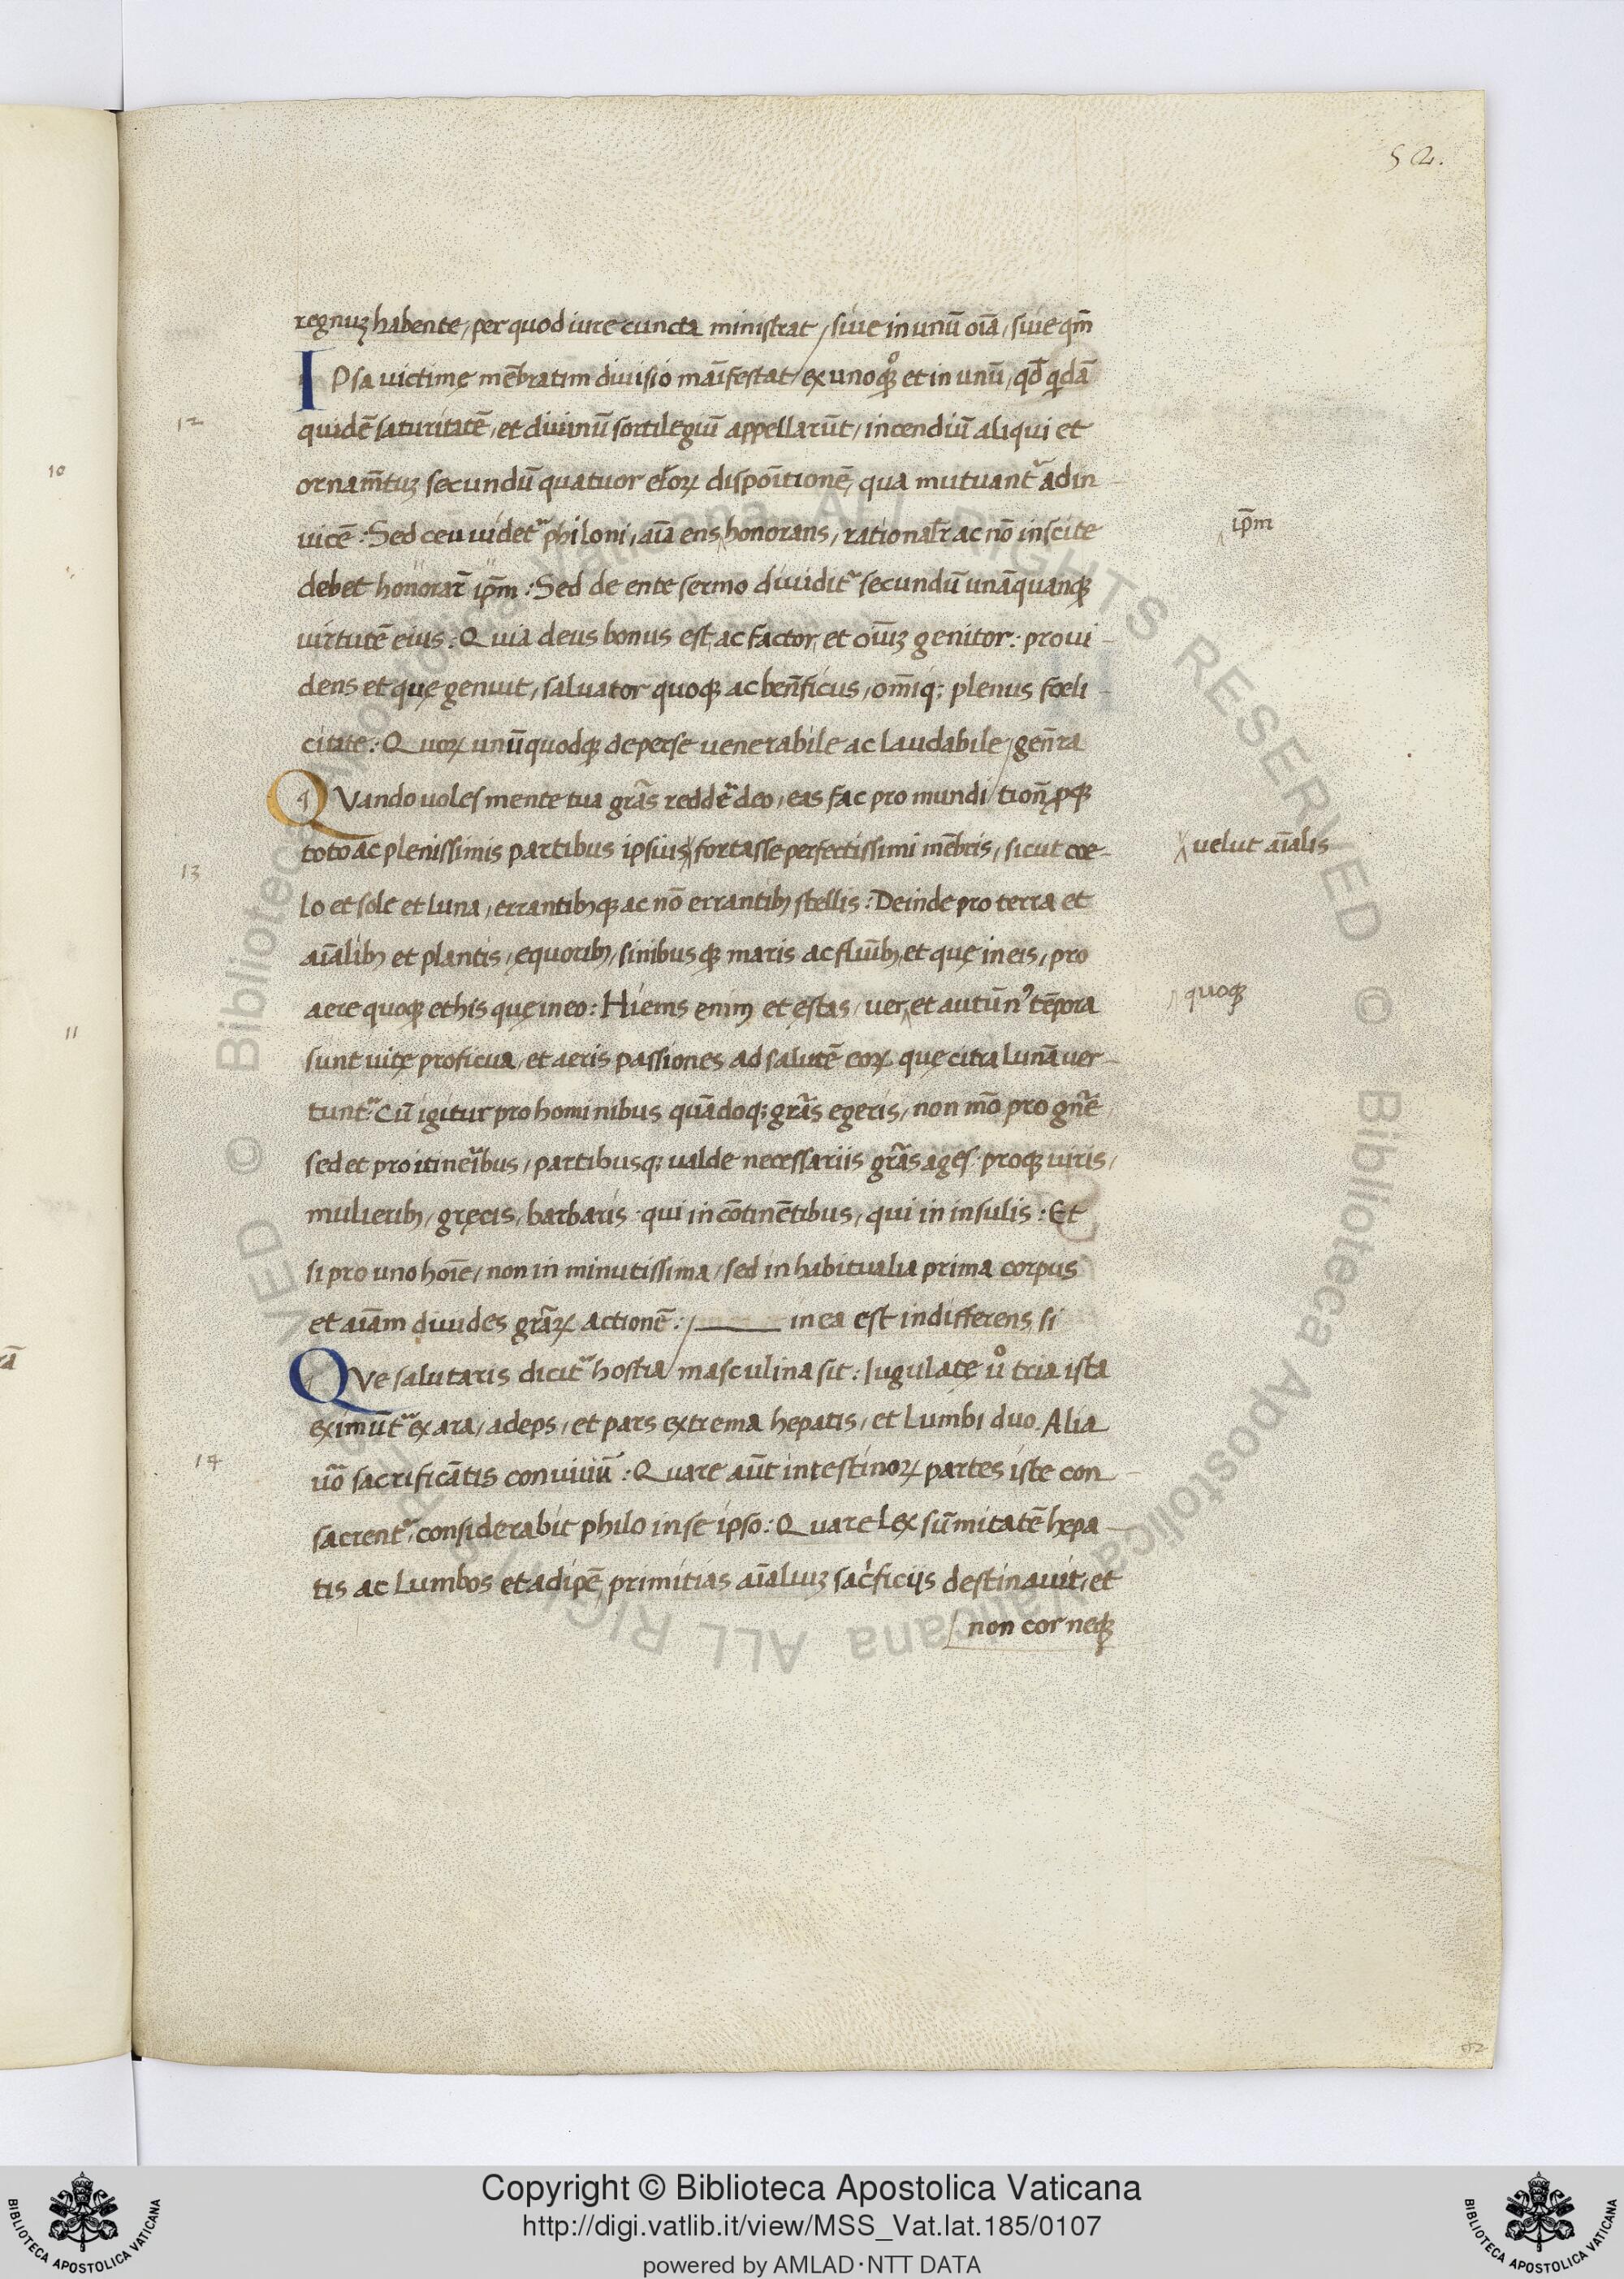 52.
regnuꝫ habente, per quod iure cuncta ministrat / siue in unū oīa, siue qm̄
IPsa uictimę mēbratim diuisio maīfestat / ex unoqꝫ et in unū, qd̄ qdā
12
quidē saturitatē, et diuinū sortilegiū appellarūt, incendiū aliqui et
ornam̄tuꝫ secundū quatuor elꝝ dispōitionē, qua mutuant᷑ adin-
uicē: Sed ceu uidet᷑ philoni, aīa ens honorans, rational̄r ac nō inscite
ip̄m
debet honorar̄ ip̄m: Sed de ente sermo diuidit᷑ secundū unāquanqꝫ
uirtutē eius: Quia deus bonus est, ac factor, et oīuꝫ genitor: proui-
dens et quę genuit, saluator quoqꝫ ac ben̄ficus, om̄iqꝫ plenus foeli-
citate: Quoꝝ unūquodqꝫ de per se uenerabile ac laudabile / gen̄ra
QVando uoles mente tua grās reddēdeo, eas fac pro mundi / tion̄ꝫ pqꝫ
toto ac plenissimis partibus ipsius fortasse perfectissimi mēbris, sicut coe-
velut aīalis
13
lo et sole et luna, errantibꝫqꝫ ac nō errantibꝫ stellis: Deinde pro terra et
aīalibꝫ et plantis, ęquoribꝫ, sinibusqꝫ maris ac fluīibꝫ, et quę in eis, pro
aere quoqꝫ et his quę in eo: Hiems enim et ęstas, uer, et autūnꝰ tēpora
quoqꝫ
sunt uitę proficua, et aeris passiones ad salutē eoꝝ quę citra lunā uer-
tunt᷑: Cū igitur pro hominibus quādoqꝫ grās egeris, non mō pro gn̄re
sed et pro itineribus, partibusqꝫ ualde necessariis grās ages: proqꝫ uiris,
mulieribꝫ, gręcis, barbaris: qui in cōtinētibus, qui in insulis: Et
si pro uno hoīe, non in minutissima, sed in habitualia prima corpus
et aīam diuides grāꝝ actionē: / in ea est indifferens, si
QVe salutaris dicit᷑ hostia / masculina sit: Iugulatę ůo tria ista
eximūt᷑ ex ara, adeps, et pars extrema hepatis, et lumbi duo. Alia
14
uō sacrificātis conuiuiū: Quare aūt intestinoꝝ partes istę con-
sacrent᷑, considerabit philo in se ipso: Quare lex sūmitatē hepa-
tis ac lumbos et adipē, primitias aīaliuꝫ sacrificijs destinauit, et
non cor neqꝫ
10
11
52
Copyright © Biblioteca Apostolica Vaticana
http://digi.vatlib.it/view/MSS_Vat.lat.185/0107
powered by AMLAD·NTT DATA
BIBLIOTECA APOSTOLICA VATICANA
BIBLIOTECA APOSTOLICA VATICANA